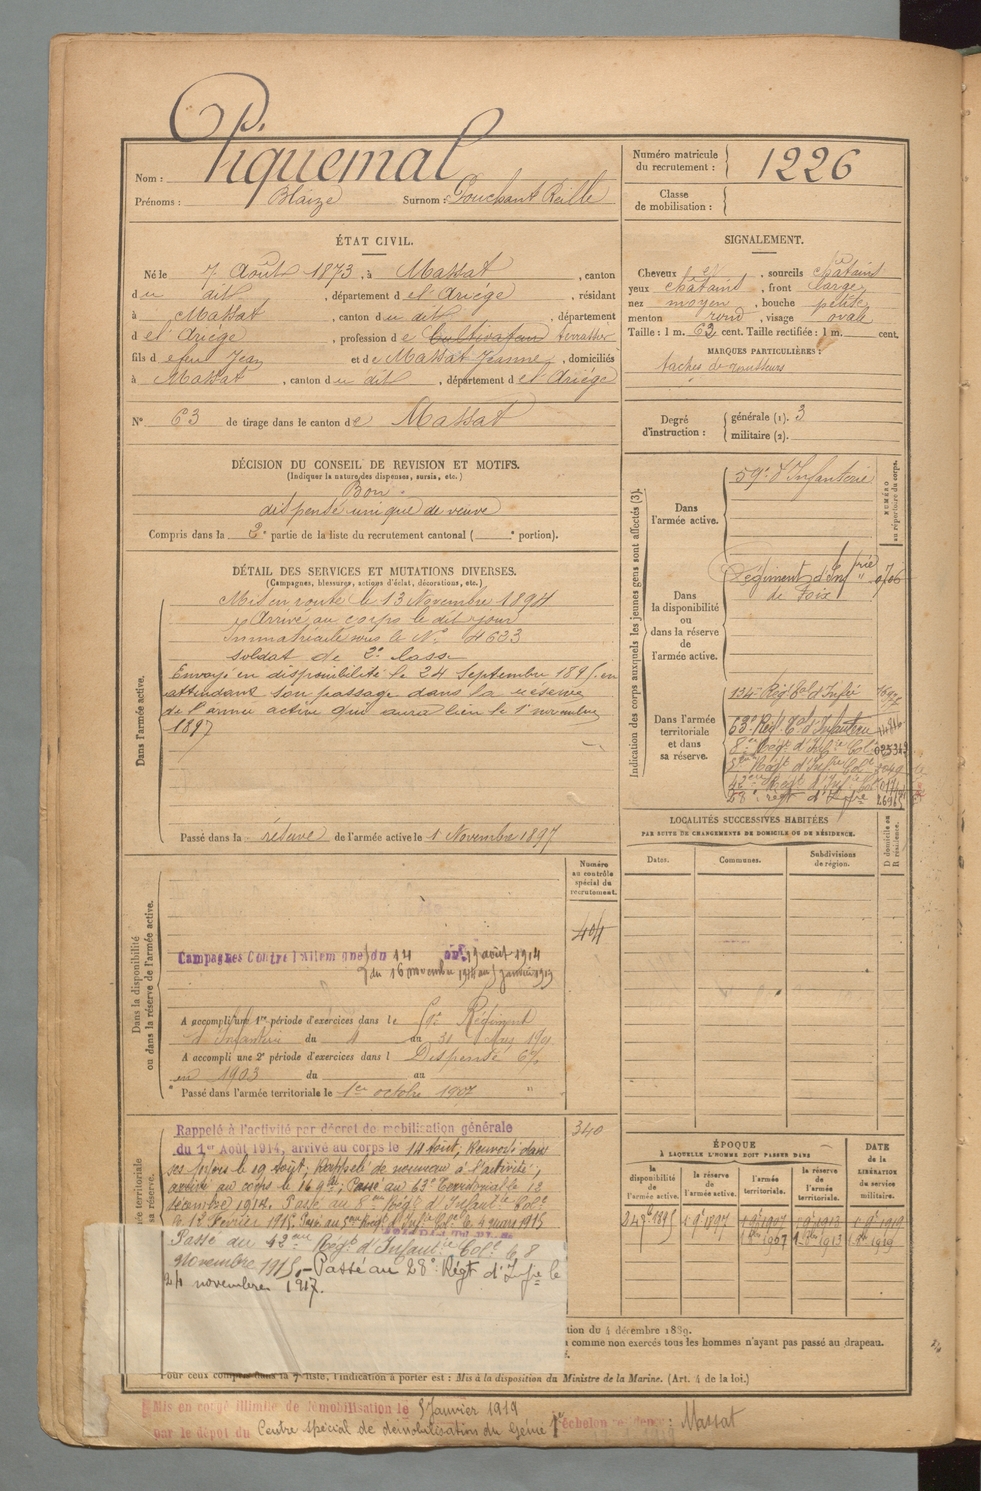 P.
Nom : Piquemal
Prénoms : Blaize Surnom : Pouchant Reille
Numéro matricule du recrutement : 1226
Classe de mobilisation :
ÉTAT CIVIL.
Né le 7 Août 1873, à Massat, canton
du dit, département de l'Ariège, résidant
à Massat, canton du dit, département
de l'Ariège, profession de Cultivateur terrassier
fils de feu Jean et de Massat Jeanne, domiciliés
à Massat, canton du dit, département de l'Ariège
N° 63 de tirage dans le canton de Massat
SIGNALEMENT.
Cheveux et, sourcils châtains
yeux châtains, front large
nez moyen, bouche petite
menton rond, visage ovale
Taille : 1 m. 62 cent. Taille rectifiée : 1 m. cent.
MARQUES PARTICULIÈRES :
taches de rousseurs
Degré d'instruction : générale (1). 3
militaire (2).
DÉCISION DU CONSEIL DE REVISION ET MOTIFS.
(Indiquer la nature des dispenses, sursis, etc.)
Bon
dispensé unique de veuve
Compris dans la 2e partie de la liste du recrutement cantonal ( e portion).
DÉTAIL DES SERVICES ET MUTATIONS DIVERSES.
(Campagnes, blessures, actions d'éclat, décorations, etc.)
Dans l'armée active.
Mis en route le 13 Novembre 1894
Arrivé au corps le dit jour
Immatriculé sous le N° 4633
soldat de 2e classe
Envoyé en disponibilité le 24 Septembre 1895 en
attendant son passage dans la réserve
de l'armée active qui aura lieu le 1er novembre
1897
Passé dans la réserve de l'armée active le 1 Novembre 1897
Indication des corps auxquels les jeunes gens sont affectés (3).
NUMÉRO au répertoire du corps.
Dans l'armée active.
59e d'Infanterie
Dans la disponibilité ou dans la réserve de l'armée active.
Régiment d'Infrie
de Foix
0706
Dans l'armée territoriale et dans sa réserve.
134e Rég. tal d'Infie
63e Rég. tal d'Infanterie
8me Régt d'Infie Cole
5me Régt d'Infrie Cole
42me Régt d'Infie Cole
28e régt d'Infie
LOCALITÉS SUCCESSIVES HABITÉES
PAR SUITE DE CHANGEMENTS DE DOMICILE OU DE RÉSIDENCE.
Dates. Communes. Subdivisions de région. D domicile ou R résidence.
Dans la disponibilité ou dans la réserve de l'armée active.
Numéro au contrôle spécial du recrutement.
404
Campagnes Contre l'Allemagne du 14 au 19 août 1914
du 16 novembre 1914 au 5 Janvier 1919
A accompli une 1re période d'exercices dans le 59e Régiment
d'Infanterie du 4 au 31 Mars 1901
A accompli une 2e période d'exercices dans l Dispensé
en 1903 du au
Passé dans l'armée territoriale le 1er octobre 1907
340
Rappelé à l'activité par décret de mobilisation générale
du 1er Août 1914, arrivé au corps le 14 Août, Renvoyé dans
ses foyers le 19 Août; Rappelé de nouveau à l'activité;
arrivé au corps le 16 9bre; Passé au 63e Territoriale 12
décembre 1914. Passé au 8me Régt d'Infante Cole
le 12 Février 1915. Passé au 5me Régt d'Infie Cole le 4 mars 1915
Passé au 42me Régt d'Infante Cole le 8
Novembre 1915. Passé au 28e Régt d'Infie le
24 novembre 1917.
ÉPOQUE
À LAQUELLE L'HOMME DOIT PASSER DANS
la disponibilité de l'armée active. la réserve de l'armée active. l'armée territoriale. la réserve de l'armée territoriale.
DATE de la LIBÉRATION du service militaire.
24 7bre 1895 1 9bre 1897 1 9bre 1907 1 9bre 1913 1 9bre 1919
1 8bre 1907 1 8bre 1913 1 8bre 1919
tion du 4 décembre 1889.
à comme non exercés tous les hommes n'ayant pas passé au drapeau.
Pour ceux compris dans la 7e liste, l'indication à porter est : Mis à la disposition du Ministre de la Marine. (Art. 4 de la loi.)
Mis en congé illimité de démobilisation le 5 Janvier 1919
par le dépôt du Centre spécial de démobilisation du Génie 1er échelon résidence : Massat